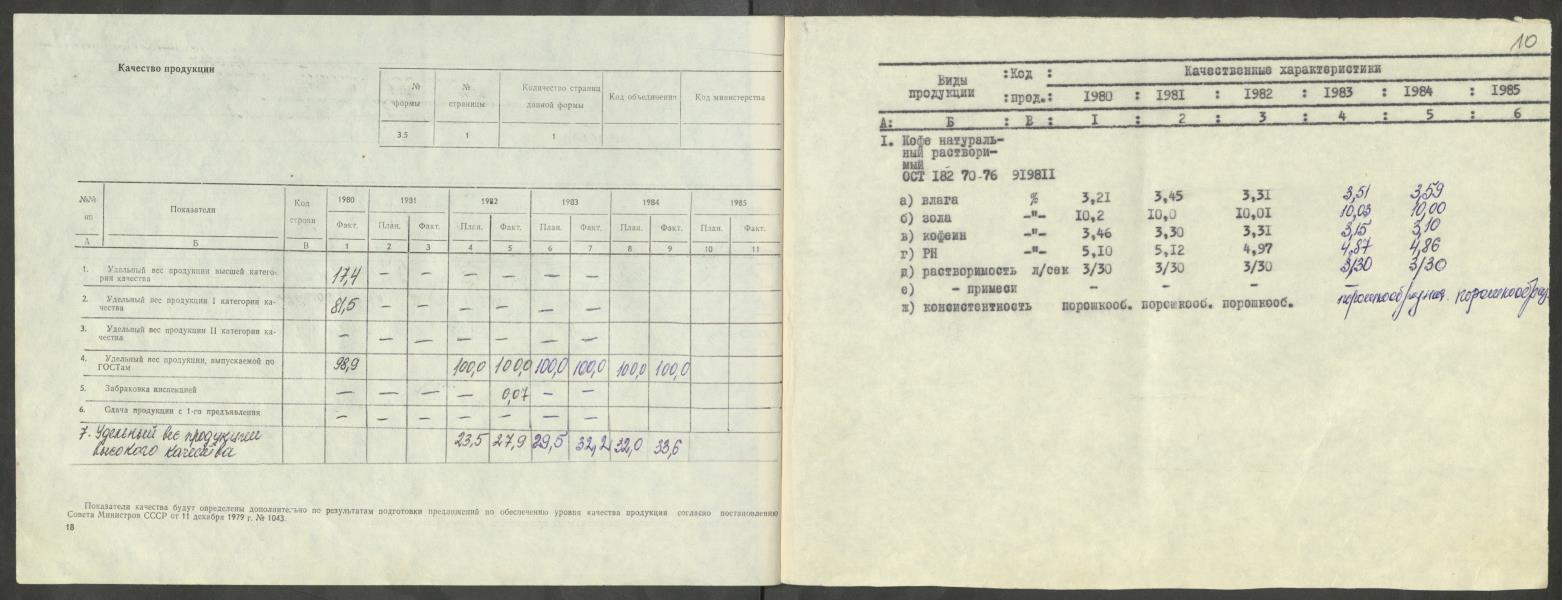 Качество продукции
№ формы № страницы Количество страниц данной формы Код объединения Код министерства
3.5 1 1
№№ пп Показатели Код строки 1980 1981 1982 1983 1984 1985
Факт. План. Факт. План. Факт. План. Факт. План. Факт. План. Факт.
А Б В 1 2 3 4 5 6 7 8 9 10 11
1. Удельный вес продукции высшей катего-
рии качества 17,4 — — — — — —
2. Удельный вес продукции I категории ка-
чества 81,5 — — — — — —
3. Удельный вес продукции II категории ка-
чества — — — — — — —
4. Удельный вес продукции, выпускаемой по
ГОСТам 98,9 100,0 100,0 100,0 100,0 100,0 100,0
5. Забраковка инспекцией — — — — 0,07 — —
6. Сдача продукции с 1-го предъявления — — — — — — —
7. Удельный вес продукции
высокого качества 23,5 27,9 29,5 32,2 32,0 33,6
Показатели качества будут определены дополнительно по результатам подготовки предложений по обеспечению уровня качества продукции согласно постановлению
Совета Министров СССР от 11 декабря 1979 г. № 1043.
18
10
Виды продукции :Код : Качественные характеристики
:прод.: 1980 : 1981 : 1982 : 1983 : 1984 : 1985
А: Б : В : I : 2 : 3 : 4 : 5 : 6
I. Кофе натураль-
ный раствори-
мый
ОСТ 182 70-76 919811
а) влага % 3,21 3,45 3,31 3,51 3,59
б) зола -"- 10,2 10,0 10,01 10,03 10,00
в) кофеин -"- 3,46 3,30 3,31 3,15 3,10
г) РН -"- 5,10 5,12 4,97 4,87 4,86
д) растворимость л/сек 3/30 3/30 3/30 3/30 3/30
е) - примеси - - - —
ж) консистентность порошкооб. порошкооб. порошкооб. порошкообразная. порошкообраз.